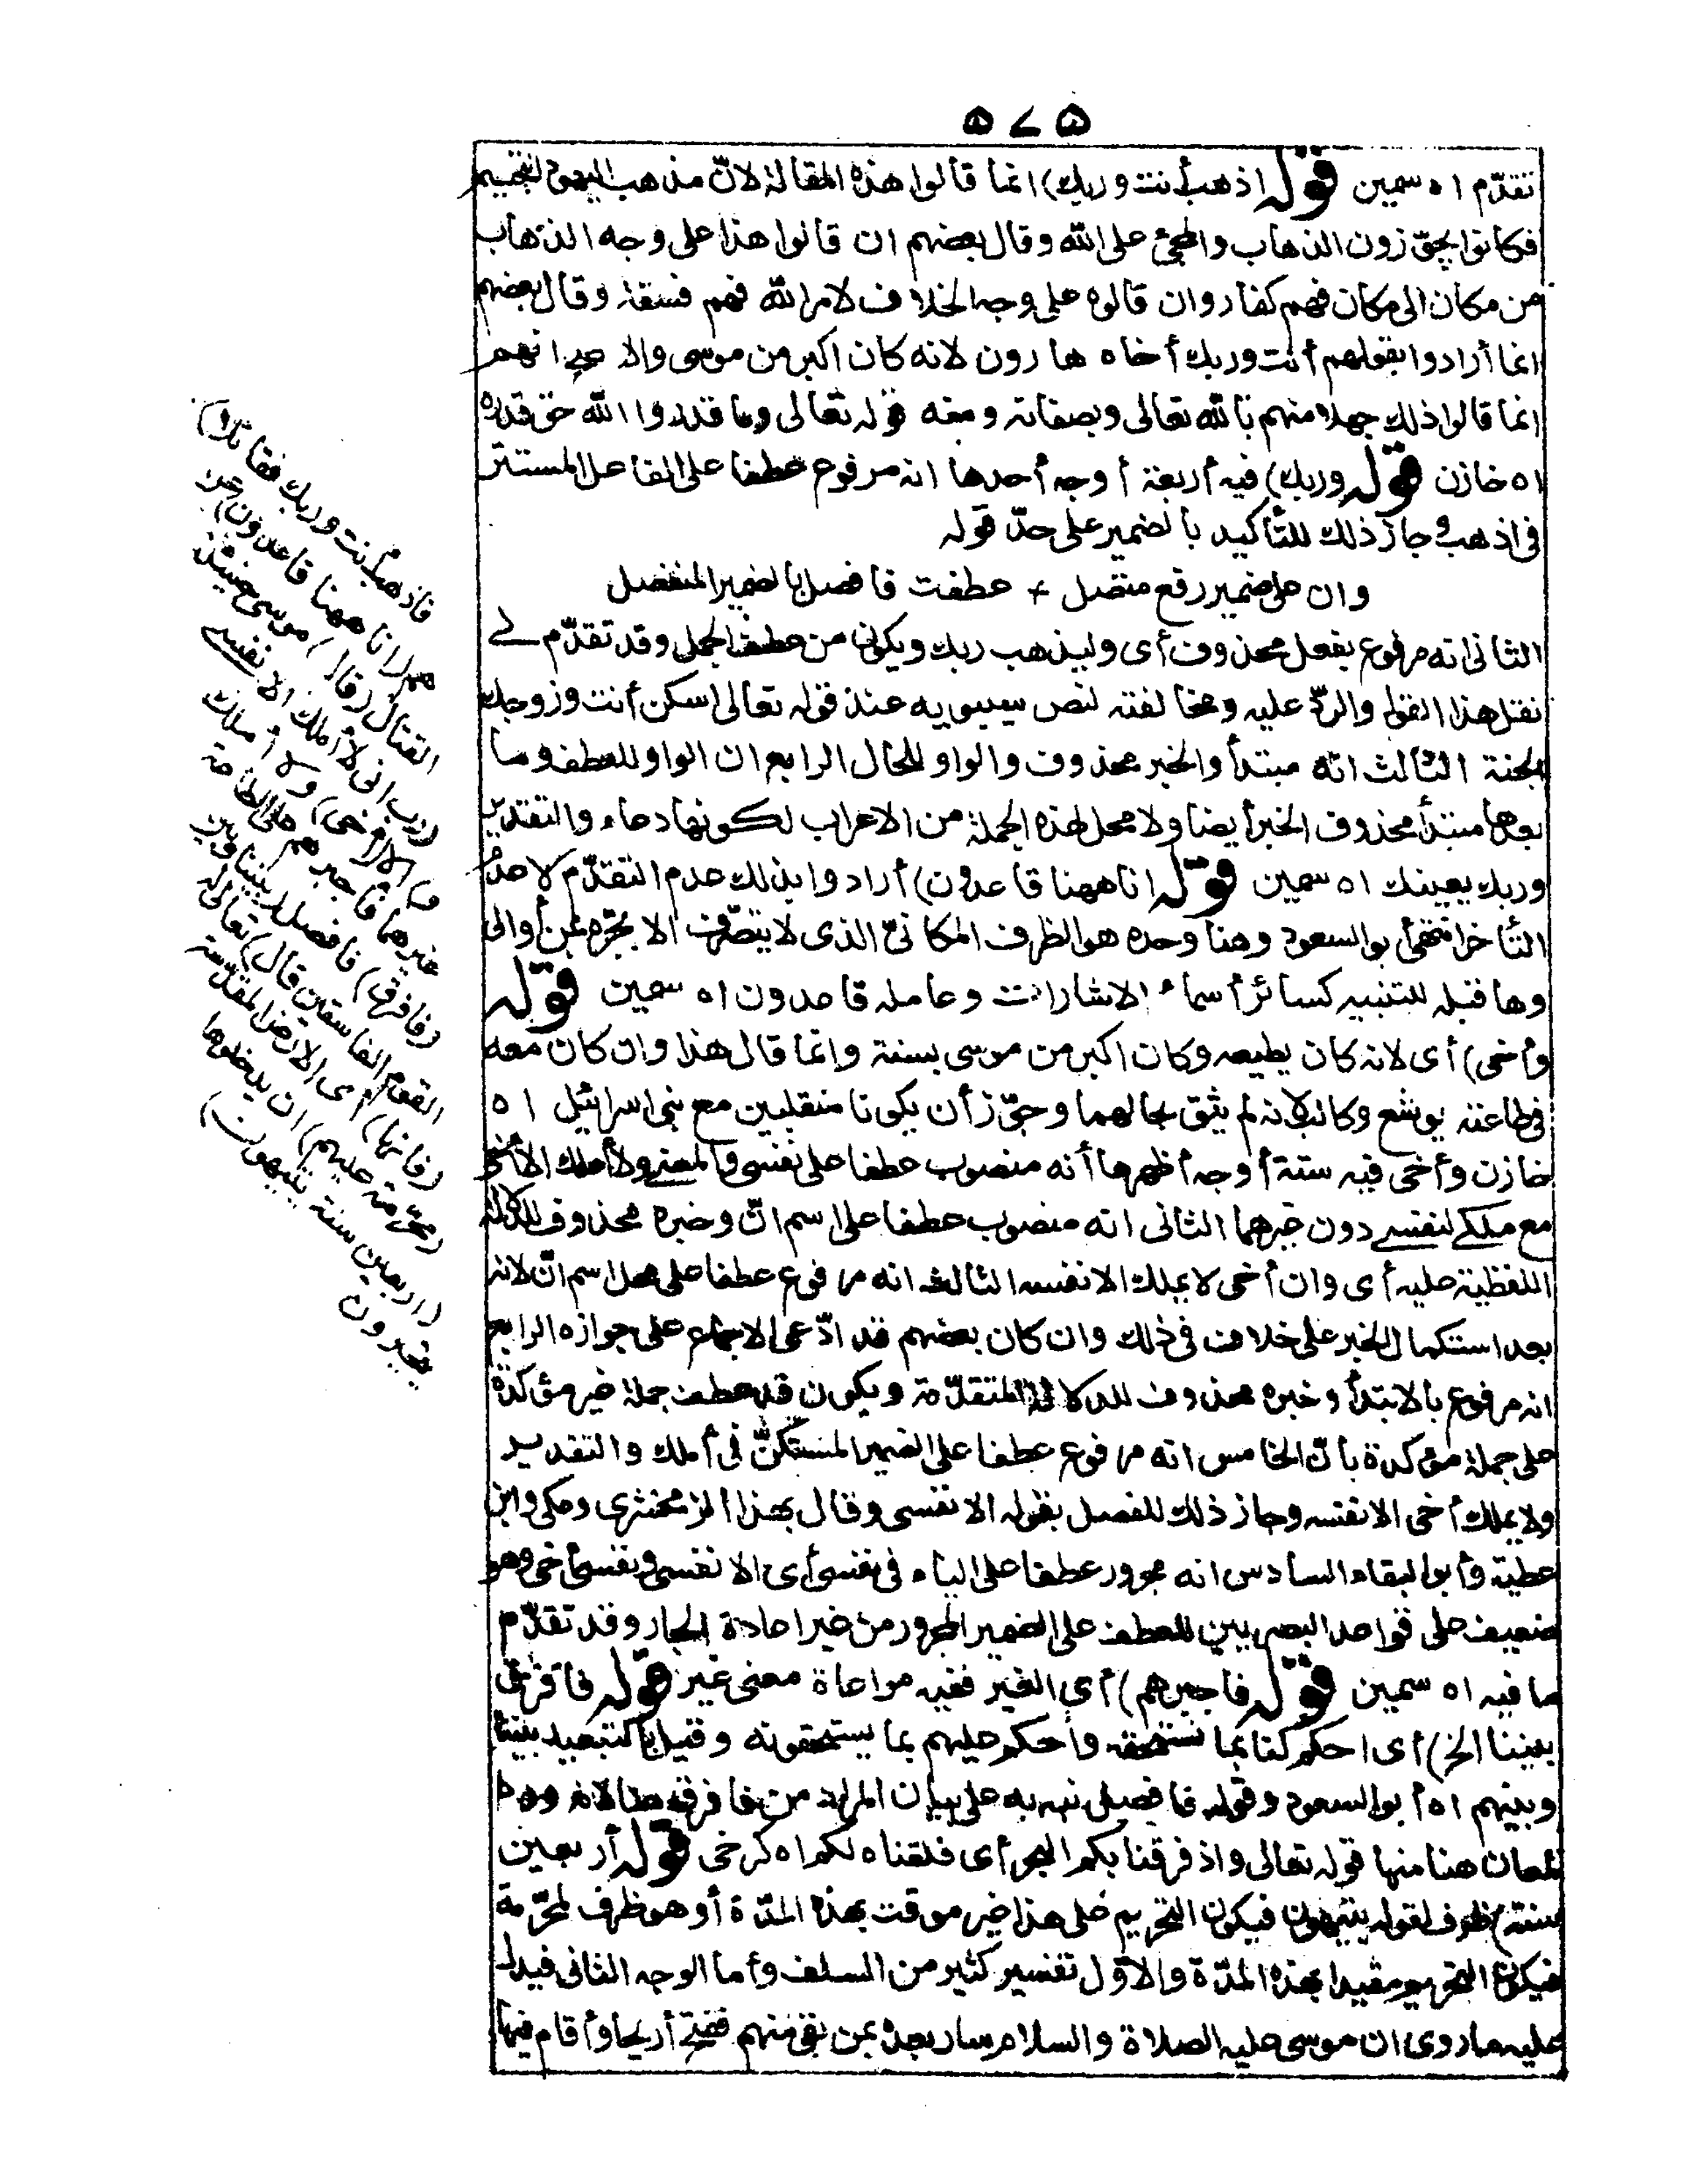 ٥٧٥
تقدّم اه سمين قوله اذهب أنت وربك) انما قالوا هذه المقالة لانّ مذهب اليهود التجسيم
فكانوا يجوّزون الذهاب والمجئ على الله وقال بعضهم ان قالوا هذا على وجه الذهاب
من مكان الى مكان فهم كفار وان قالوه على وجه الخلاف لامر الله فهم فسقة وقال بعضهم
انما أرادوا بقولهم أنت وربك أخاه هارون لانه كان اكبر من موسى والاصح انهم
انما قالوا ذلك جهلا منهم بالله تعالى وبصفاته ومنه قوله تعالى وما قدروا الله حق قدره
اه خازن قوله وربك) فيه أربعة أوجه أحدها انه مرفوع عطفا على الفاعل المستتر
فى اذهب وجاز ذلك للتأكيد بالضمير على حدّ قوله
وان على ضمير رفع متصل + عطفت فافصل بالضمير المنفصل
الثانى انه مرفوع بفعل محذوف أى وليذهب ربك ويكون من عطف الجمل وقد تقدّم لى
نقل هذا القول والردّ عليه ومخالفته لنص سيبويه عند قوله تعالى اسكن أنت وزوجك
الجنة الثالث انه مبتدأ والخبر محذوف والواو للحال الرابع ان الواو للعطف وما
بعدها مبتدأ محذوف الخبر أيضا ولا محل لهذه الجملة من الاعراب لكونها دعاء والتقدير
وربك يعينك اه سمين قوله انا ههنا قاعدون) أرادوا بذلك عدم التقدّم لا عدم
التأخر انتهى أبو السعود وهنا وحده هو الظرف المكانىّ الذى لا يتصرّف الا بجرّه بمن أو الى
وها قبله للتنبيه كسائر أسماء الاشارات وعامله قاعدون اه سمين قوله
وأخى) أى لانه كان يطيعه وكان اكبر من موسى بسنة وانما قال هذا وان كان معه
فى طاعته يوشع وكالب لانه لم يثق بحالهما وجوّز أن يكونا منقلبين مع بنى اسرائيل اه
خازن وأخى فيه ستة أوجه أظهرها أنه منصوب عطفا على نفسى والمعنى ولا أملك الا أخى
مع ملكى لنفسى دون غيرهما الثانى انه منصوب عطفا على اسم انّ وخبره محذوف للدلالة
اللفظية عليه أى وان أخى لا يملك الا نفسه الثالث انه مرفوع عطفا على محل اسم انّ لانه
بعد استكمال الخبر على خلاف فى ذلك وان كان بعضهم قد ادّعى الاجماع على جوازه الرابع
انه مرفوع بالابتدأ وخبره محذوف للدلالة المتقدّمة ويكون قد عطف جملة غير مؤكدة
على جملة مؤكدة بانّ الخامس انه مرفوع عطفا على الضمير المستكنّ فى أملك والتقدير
ولا يملك أخى الا نفسه وجاز ذلك للفصل بقوله الا نفسى وقال بهذا الزمخشرى ومكى وابن
عطية وأبو البقاء السادس انه مجرور عطفا على الياء فى نفسى أى الا نفسى ونفس أخى وهو
ضعيف على قواعد البصريين للعطف على الضمير المجرور من غير اعادة الجار وقد تقدّم
ما فيه اه سمين قوله فاجبرهم) أى الغير ففيه مراعاة معنى غير قوله فافرق
بيننا الخ) أى احكم لنا بما نستحقه واحكم عليهم بما يستحقونه وقيل بالتبعيد بيننا
وبينهم اه أبو السعود وقوله فافصل نبه به على بيان المراد من فافرق هنا لانه ورد
لمعان هنا منها قوله تعالى واذ فرقنا بكم البحر أى فلقناه لكم اه كرخى قوله أربعين
سنة) ظرف لقوله يتيهون فيكون التحريم على هذا غير موقت بهذه المدّة أو هو ظرف لمحرّمة
فيكون التحريم مقيدا بهذه المدّة والاوّل تفسير كثير من السلف وأما الوجه الثانى فيدل
عليه ما روى ان موسى عليه الصلاة والسلام سار بعده بمن بقى منهم ففتح أريحا وأقام فيها
فاذهب أنت وربك فقاتلا)
هم (انا ههنا قاعدون) عن
القتال (قال) موسى حينئذ
(رب انى لا أملك الا نفسى
و) الا (أخى) ولا أملك
غيرهما فاجبرهم على الطاعة
(فافرق) فافصل (بيننا وبين
القوم الفاسقين قال) تعالى له
(فانها) أى الارض المقدّسة
(محرّمة عليهم) ان يدخلوها
(اربعين سنة يتيهون)
يتحيرون